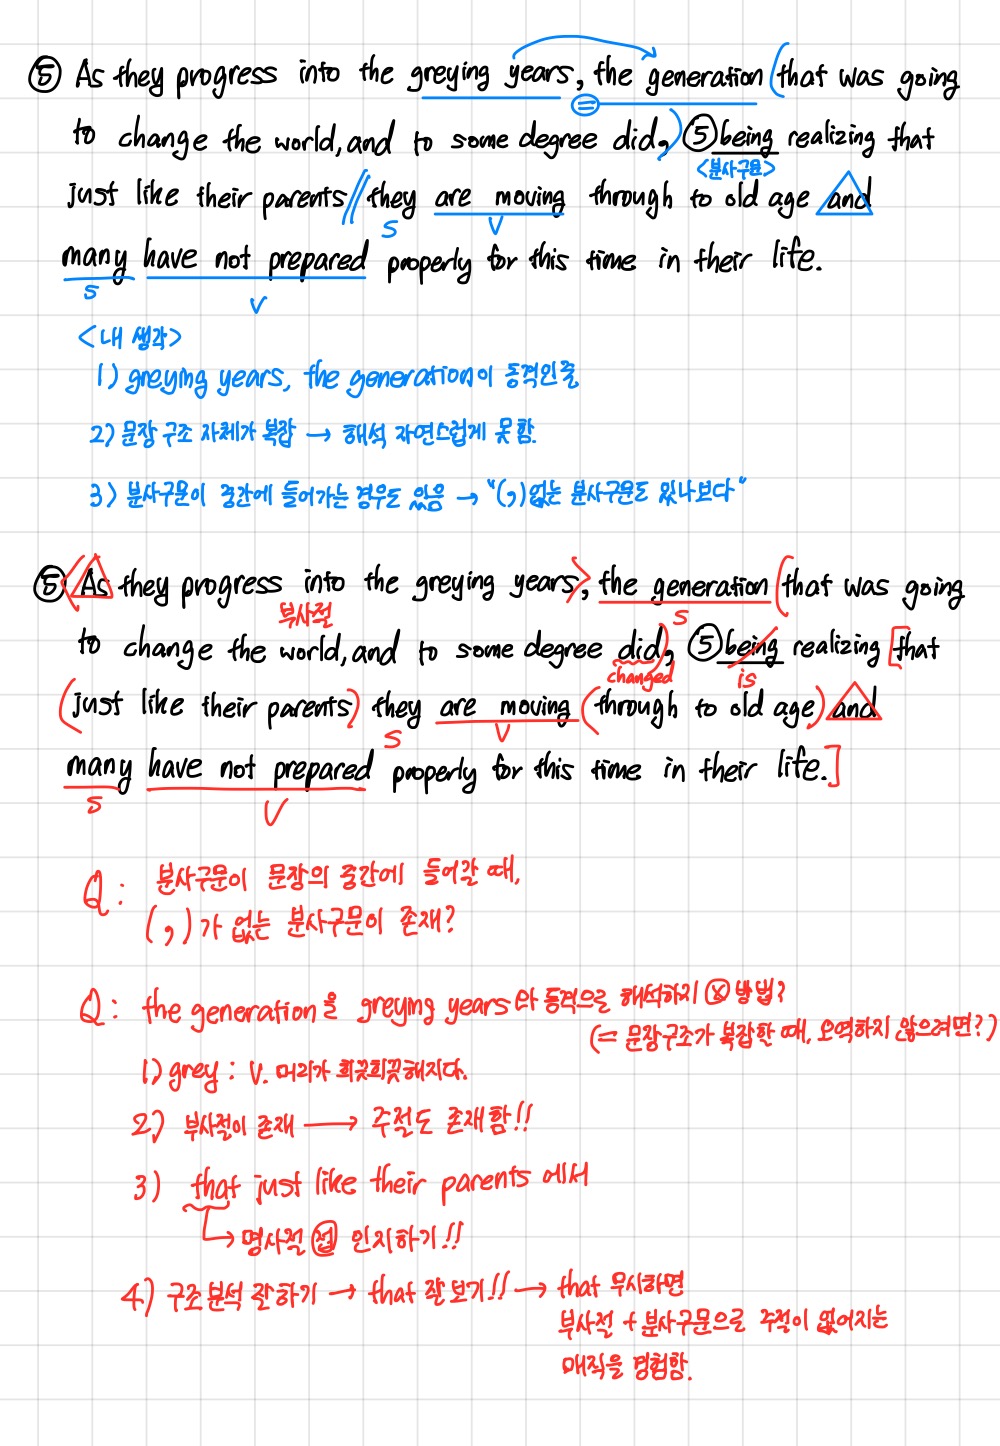 ⑤ As they progress into the greying years, the generation (that was going
=
to change the world, and to some degree did,) ⑤ being realizing that
<분사구문>
just like their parents // they are moving through to old age and
S V
many have not prepared properly for this time in their life.
S V
<내 생각>
1) greying years, the generation이 동격인줄
2) 문장 구조 자체가 복잡 → 해석 자연스럽게 못함.
3) 분사구문이 중간에 들어가는 경우도 있음 → "(,)없는 분사구문도 있나보다"
⑤ <As they progress into the greying years>, the generation (that was going
부사절 S
to change the world, and to some degree did), ⑤ being realizing [that
changed is
(just like their parents) they are moving (through to old age) and
S V
many have not prepared properly for this time in their life.]
S V
Q: 분사구문이 문장의 중간에 들어갈 때,
(,)가 없는 분사구문이 존재?
Q: the generation을 greying years와 동격으로 해석하지 ⓧ 방법?
(= 문장구조가 복잡할 때, 오역하지 않으려면?)
1) grey : v. 머리가 희끗희끗해지다.
2) 부사절이 존재 → 주절도 존재함!!
3) that just like their parents 에서
↳ 명사절 접 인지하기!!
4) 구조분석 잘하기 → that 잘 보기!! → that 무시하면
부사절 + 분사구문으로 주절이 없어지는
매직을 경험함.